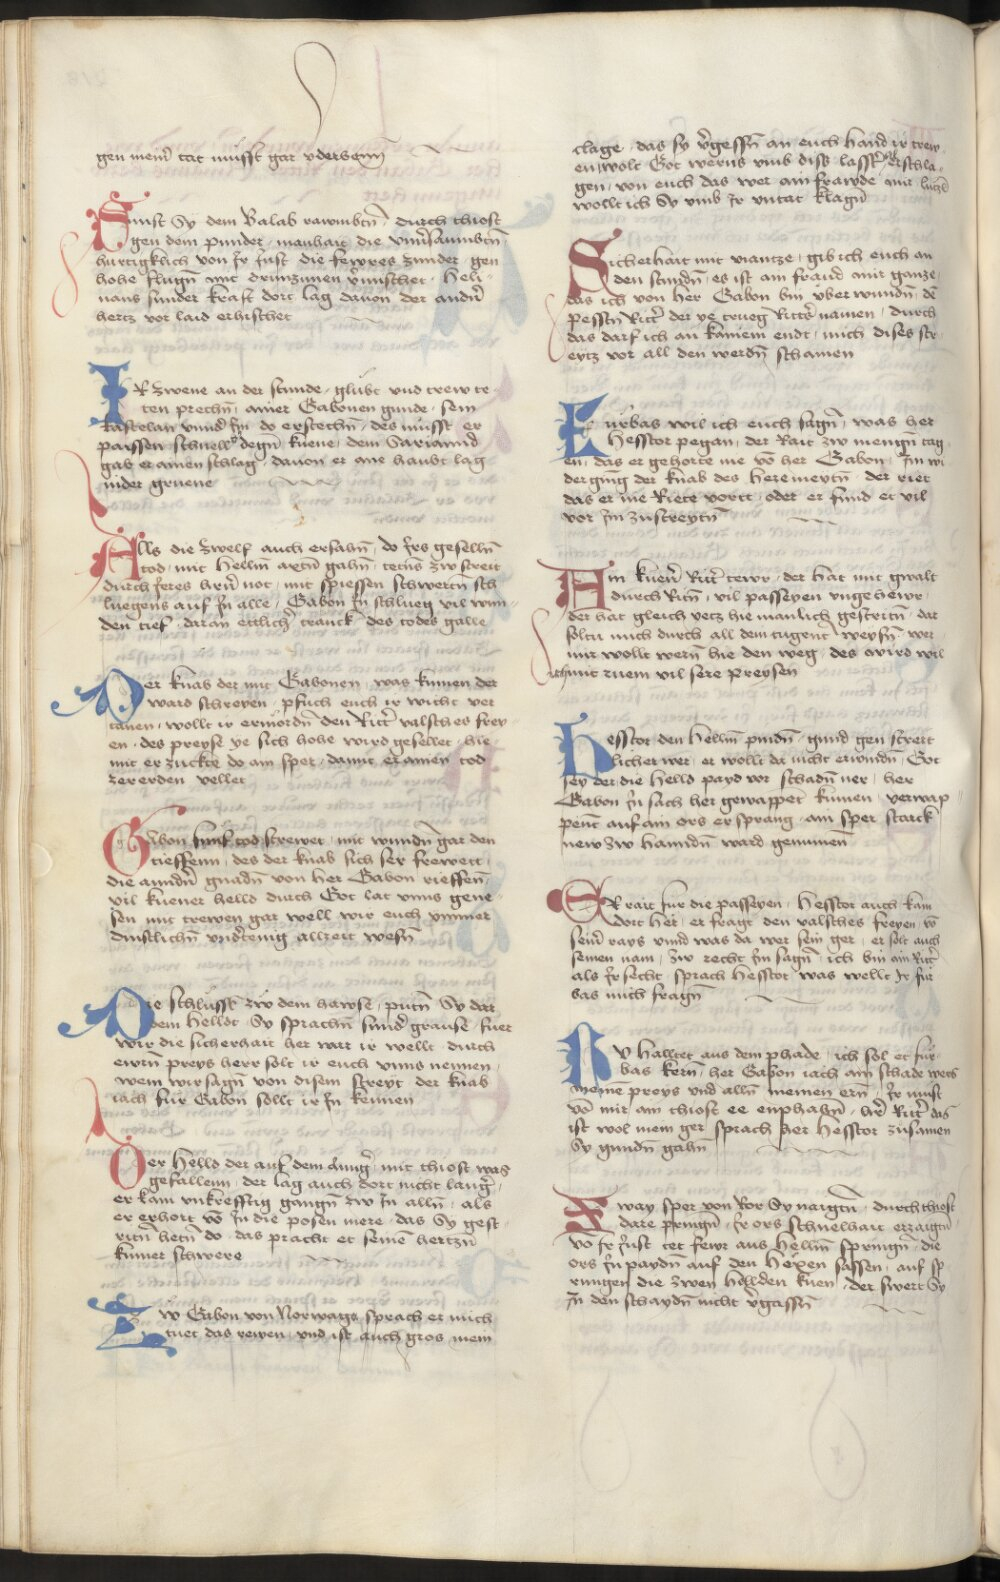 gen meinr̄ tat muͤsst gar vdersenn
Sunst Sy dem Balab rawmbtn̄ / durch thiost
gen dem punder / manhait die vnuͤsaumbtn̄ /
hurtigklich von Jr Just die fewres zunder / gen
hohe flugn̄ mit drumzunen v̄mischet / Heli-
nans sunder kraft dort lag dauon der andn̄
hertz vor laid erhischet
IR zwene an der stunde / glubt vnd trew te-
ten prechn̄ / ainer Gabonen gunde / sein
kastelan vnnd Jm do erstechn̄ / des muͤsst er
paissen schnell degn̄ kuene / dem Sariannd
gab er ainen schlag / dauon er ane haubt lag
nider gruene
Alls die zwelf auch ersahn̄ / do Jrs geselln̄
tod / mit hellm axtn̄ gahn̄ / tetns zw streit
durch seres hrn̄ not / mit spiessen schwertn̄ sch
luegens auf Jn alle / Gabon Jn schlueg vil wun-
den tief / daran ettlichr̄ tranck des todes galle
Der knab der mit Gabonen / was kumen der
ward schreyen / pfuch euch ir wicht ver
tanen / wollt ir ermordn̄ den Ritr̄ valsches frey-
en / des preyse ye sich hohe wird gesellet / hie
mit er zuckte do am sper / damit er ainen tod
zererden vellet
Gabon funf tod strewet / mit wundn̄ gar den
tieffenn / des der knab sich ser frewett /
die anndn̄ gnadn̄ von her Gabon rieffen /
vil kuener helld durch Got lat vnns gene-
sen mit trewen gar well wir euch ymmer
dinstlichn̄ vndr̄tenig allzeit wesn̄
Die schlussl zw dem hawse / putn̄ Sy dar
dem helldt / Sy sprachn̄ sundr̄ grause / fuer
wir die sicherhait her wat ir wellt / durch
ewrn̄ preys herr solt ir euch vnns nennen /
wem wir sagn̄ von disem streyt / der knab
iach fur Gabon sollt ir Jn kennen
Der helld der auf dem Anngr̄ mit thiost was
gefallenn / der lag auch dort nicht langr̄ /
er kam vnkrefftig gangn̄ zw Jn alln̄ / als
er erhort vō Jn die posen mere / das Sy gest-
ritn̄ hetn̄ do / das pracht er seinē hertzn̄
kumer schwere
Ew Gabon von Norwags sprach er mich
tuet das rewen / vnd ist auch gros mein
clage / das sy v̄gessn̄ an euch hand ir trew-
en / wolt Got werns vmb diss lasstr̄ erschla-
gen / von euch das wer ain frawde mir lutzl
wollt ich Sy vmb Jr vntat klagn̄
Sicherhait mit vianntze / gib ich euch an
den stundn̄ / es ist ain fraud mir gantze /
das ich von her Gabon bin vber wundn̄ / dē
pesstn̄ Ritr̄ der ye trueg Rittr̄s namen / durch
das darf ich an kainem endt / mich dises str-
eytz vor all den werdn̄ schamen
Furbas wil ich euch sagn̄ / was her
Hesstor pegan / der Rait zw mengn̄ tag-
en / das er gehorte nie vō her Gabon / Jm wi-
der gieng der knab des here meytn̄ / der riet
das er nie Riete vortt / oder er fund er vil
vor Jm zustreytn̄
Ain kuenr̄ Ritr̄ tewr / der hat mit gwalt
durch Ritn̄ / vil passeyen vngehewr /
der hat gleich yetz hie manlich gestritn̄ / dar
soltu mich durch all dein tugent weysn̄ / wer
mir wollt wern̄ hie den weg / des wird wil
ich mit ruem vil sere preysen
Hesstor den hellm pindn̄ / gund gen streit-
licher wer / er wollt da nicht erwindn̄ / Got
sey der die helld payd vor schadn̄ ner / her
Gabon Jn sach her gewappet kumen / verwap-
pent auf ain ors er sprang / ain sper starck
new zw hanndn̄ ward genumen
ER rait fur die passeyen / Hesstor auch kam
dort her / er fragt den valsches freyen / vō
seinr̄ rays vnnd was da wer sein ger / er solt auch
seinen nam / zw recht Jm sagn̄ / ich bin ain Ritr̄
als Jr secht / sprach Hesstor was wellt Jr fur
bas mich fragn̄
NV halltet aus dem phade / ich sol et fur-
bas kern̄ / her Gabon iach ain schade wers
meinē preys vnd alln̄ meinen ern̄ / Jr must
vō mir ain thiost ee enphahn̄ / hr̄ Ritr̄ das
ist wol mein ger sprach her Hesstor zusamen
Sy gundn̄ gahn̄
Zway sper von Ror Sy naigtn̄ / durch thiost
dare pringn̄ / Jr ors schnelhait erzaigtn̄
vō Jr Just tet fewr aus hellm springn̄ / die
ors Jn paydn̄ auf den hexen sassen / auf sp-
rungen die zwen hellden kuen / der swert Sy
Jn den schaydn̄ nicht v̄gassn̄